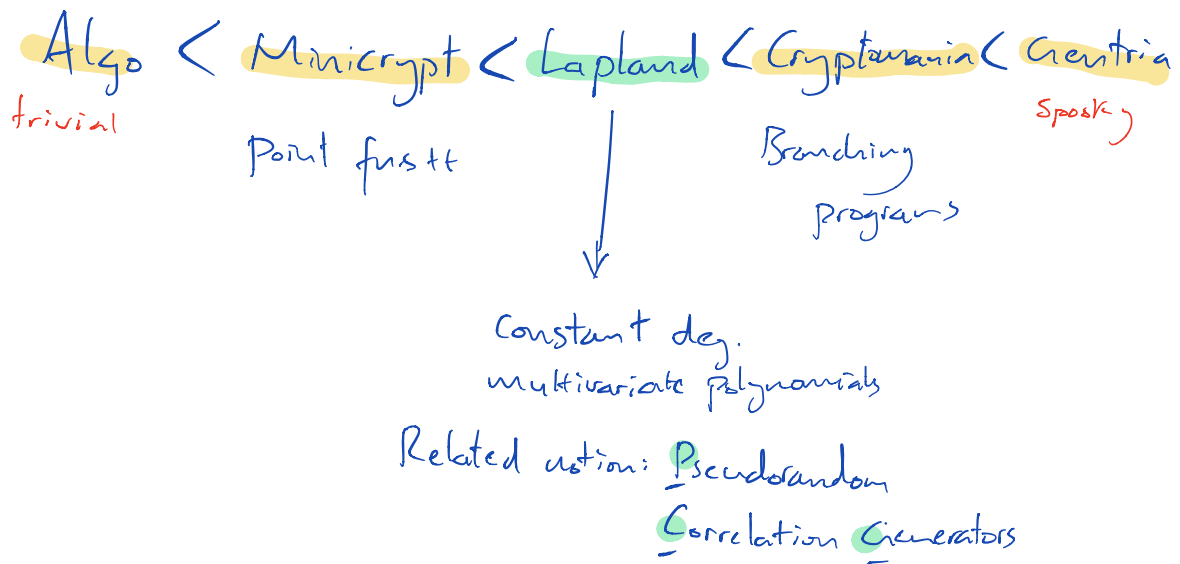 Algo < Minicrypt < Lapland < Cryptomania < Gentria
trivial
spooky
Point
Branching
programs
Constant deg.
multivariate polynomials
Related notion: Pseudorandom
Correlation Generators